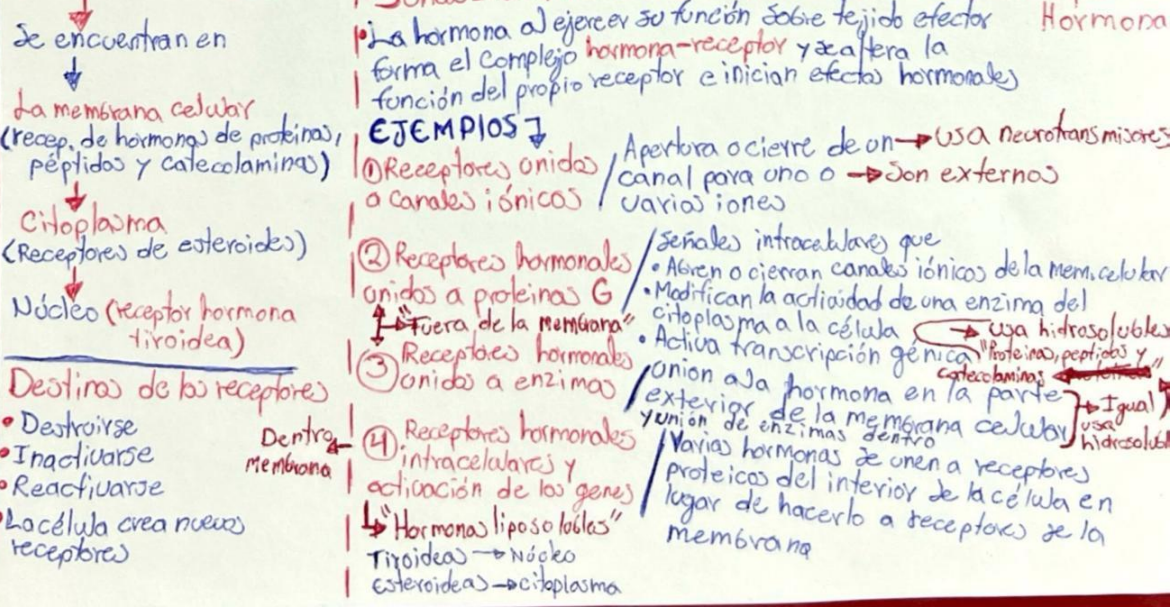 Se encuentran en
La membrana celular
(recep. de hormonas de proteínas,
péptidos y catecolaminas)
Citoplasma
(Receptores de esteroides)
Núcleo (receptor hormona
tiroidea)
Destinos de los receptores
• Destruirse
• Inactivarse
• Reactivarse
• La célula crea nuevos
receptores
• La hormona al ejercer su función sobre tejido efector
forma el complejo hormona-receptor y se altera la
función del propio receptor e inician efectos hormonales
EJEMPLOS
① Receptores unidos
a canales iónicos
Apertura o cierre de un → usa neurotransmisores
canal para uno o → Son externos
varios iones
② Receptores hormonales
unidos a proteínas G
→ "Fuera de la membrana"
Señales intracelulares que
• Abren o cierran canales iónicos de la mem. celular
• Modifican la actividad de una enzima del
citoplasma a la célula
• Activa transcripción génica
→ usa hidrosolubles
"Proteínas, peptidos y
catecolaminas
"
③ Receptores hormonales
unidos a enzimas
Union a la hormona en la parte
exterior de la membrana celular
y unión de enzimas dentro
→ Igual
usa
hidrosolubl
Dentro
membrana
④ Receptores hormonales
intracelulares y
activación de los genes
↳ "Hormonas liposolubles"
Tiroideas → Núcleo
Esteroideas → citoplasma
Varias hormonas se unen a receptores
proteicos del interior de la célula en
lugar de hacerlo a receptores de la
membrana
Hormona